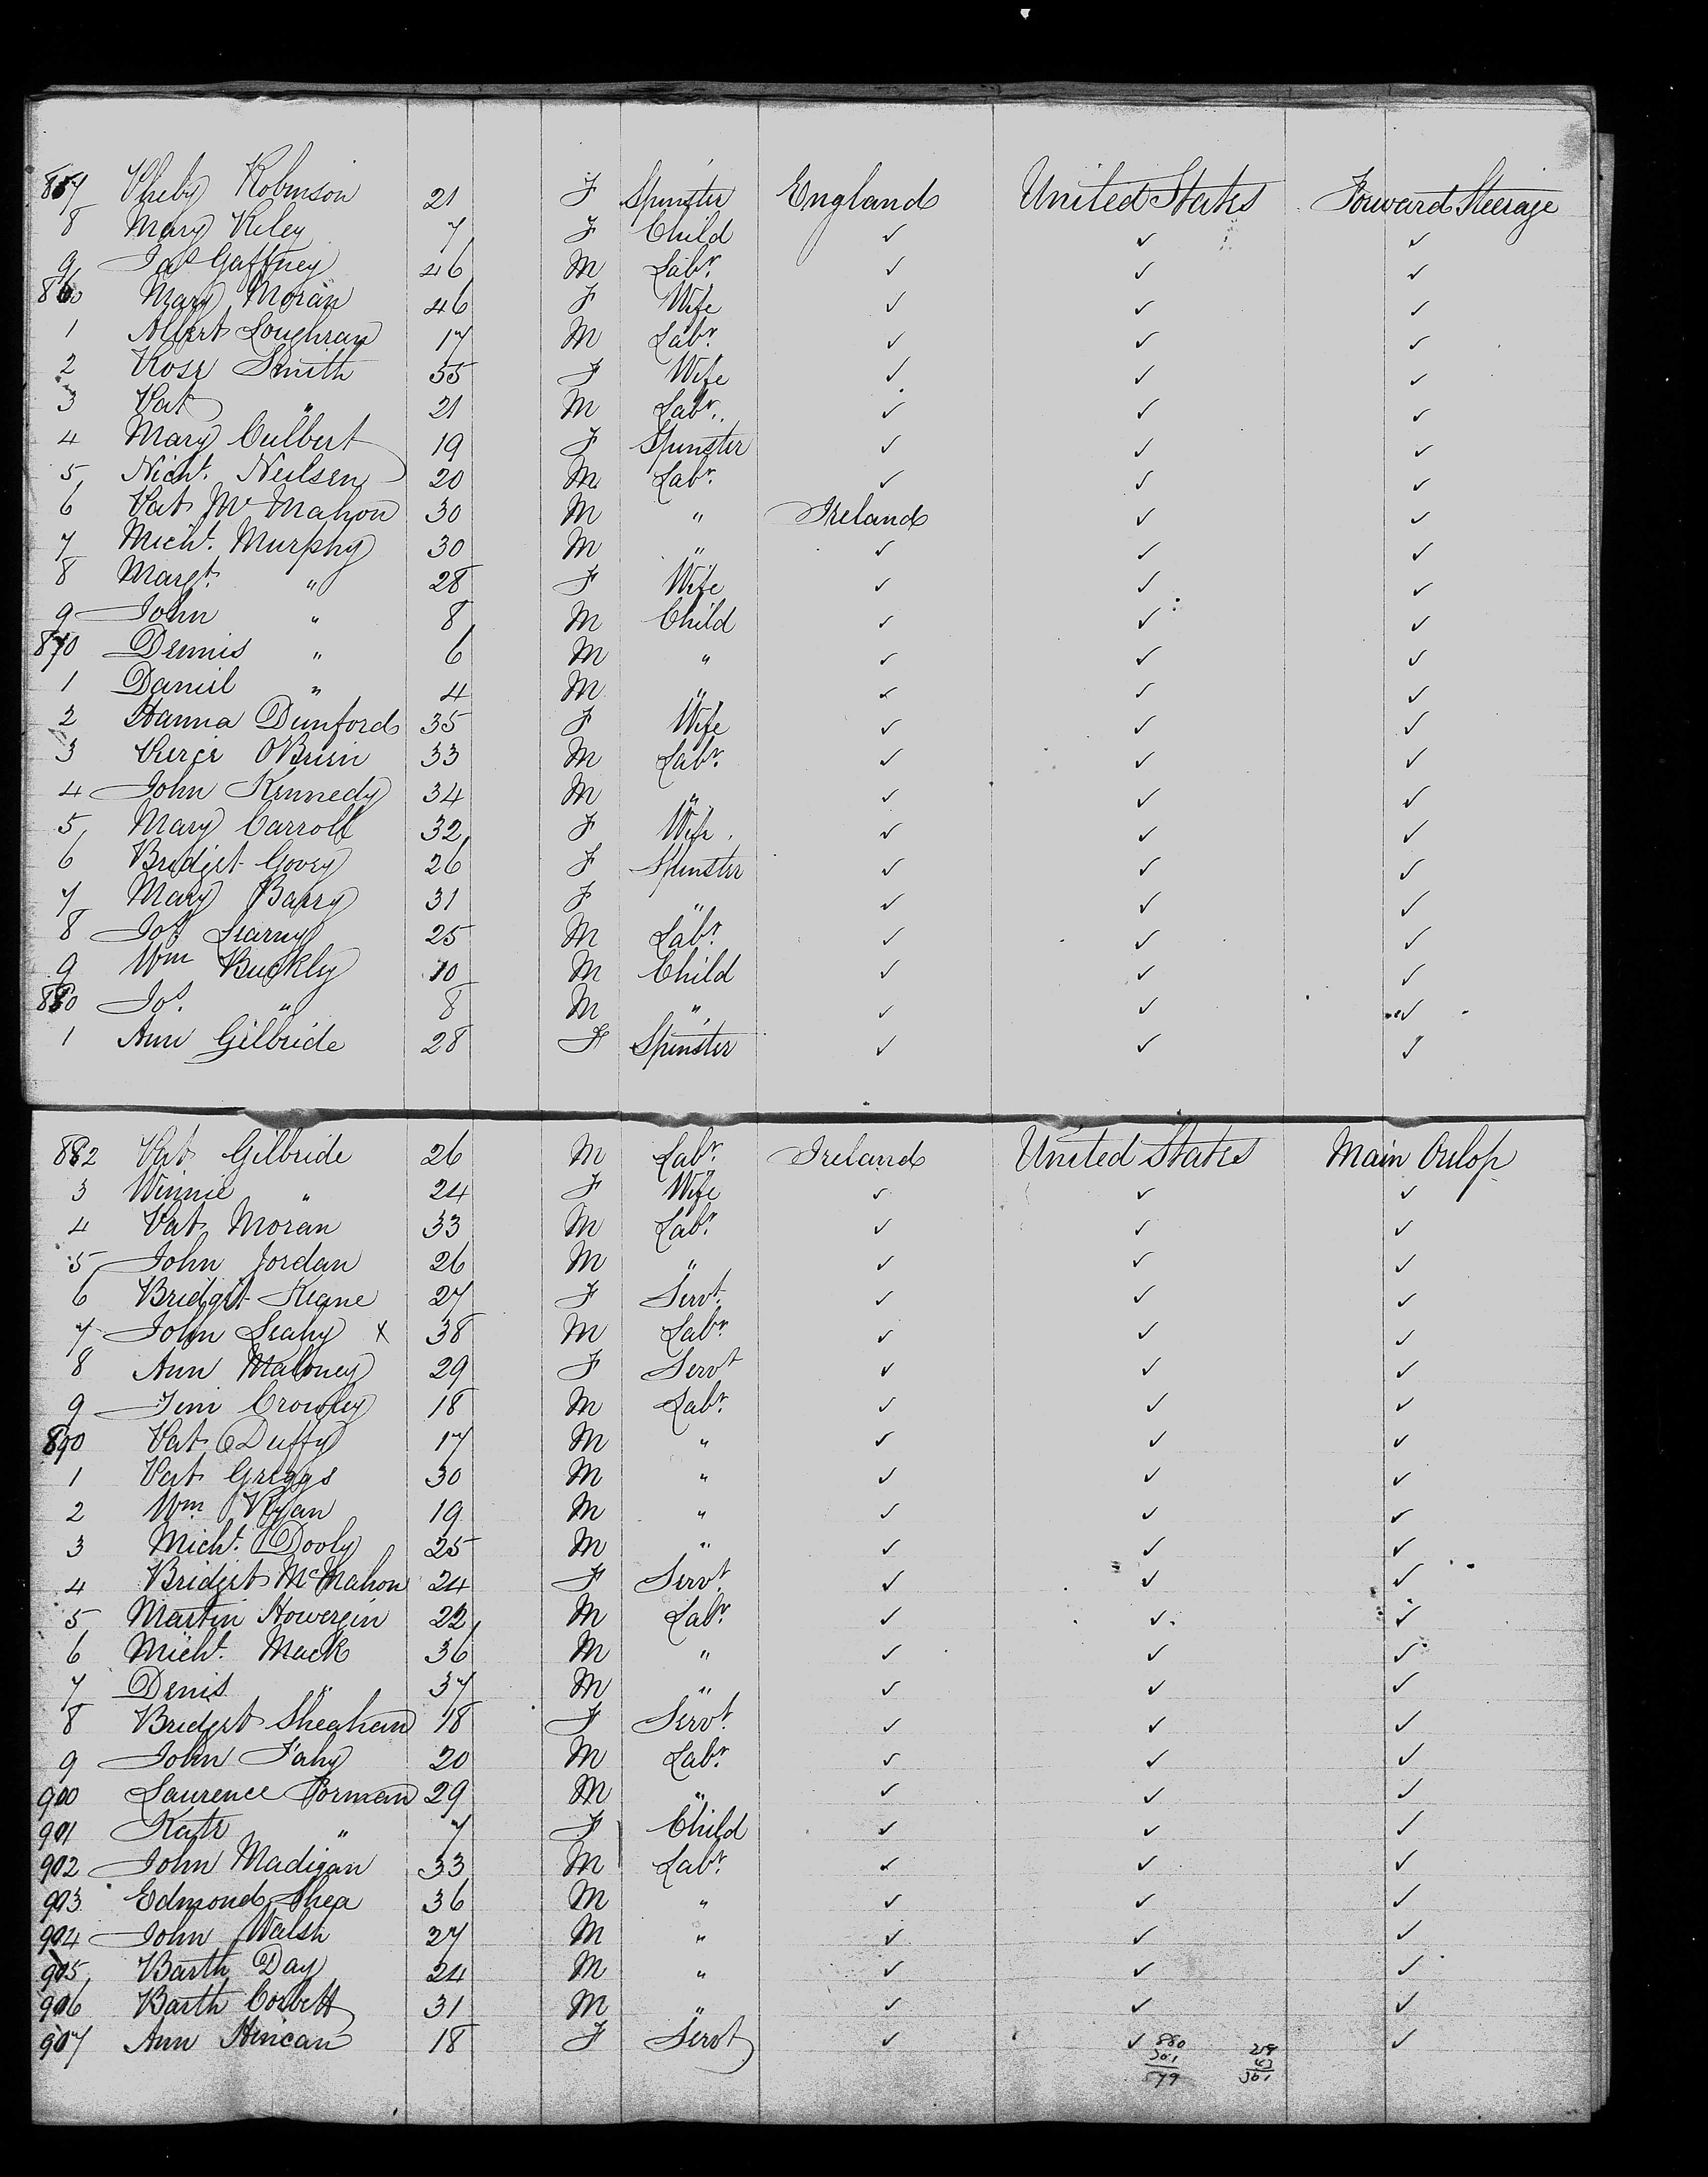 857 Pheby Robinson 21 F Spinster England United States Forward Steerage
8 Mary Riley 7 F Child ✓ ✓ ✓
9 Jas Gaffney 46 M Labr. ✓ ✓ ✓
860 Mary Moran 46 F Wife ✓ ✓ ✓
1 Albert Loughran 17 M Labr. ✓ ✓ ✓
2 Rose Smith 55 F Wife ✓ ✓ ✓
3 Pat " 21 M Labr. ✓ ✓ ✓
4 Mary Culbert 19 F Spinster ✓ ✓ ✓
5 Nichs. Neilsen 20 M Labr. ✓ ✓ ✓
6 Pat McMahon 30 M " Ireland ✓ ✓
7 Michl. Murphy 30 M " ✓ ✓ ✓
8 Margt. " 28 F Wife ✓ ✓ ✓
9 John " 8 M Child ✓ ✓ ✓
870 Dennis " 6 M " ✓ ✓ ✓
1 Daniel " 4 M " ✓ ✓ ✓
2 Hanna Dunford 35 F Wife ✓ ✓ ✓
3 Pierce OBrien 33 M Labr. ✓ ✓ ✓
4 John Kennedy 34 M " ✓ ✓ ✓
5 Mary Carroll 32 F Wife ✓ ✓ ✓
6 Bridget Govey 26 F Spinster ✓ ✓ ✓
7 Mary Barry 31 F " ✓ ✓ ✓
8 Jos. Learny 25 M Labr. ✓ ✓ ✓
9 Wm Buckly 10 M Child ✓ ✓ ✓
880 Jos. " 8 M " ✓ ✓ ✓
1 Ann Gilbride 28 F Spinster ✓ ✓ ✓
882 Pat Gilbride 26 M Labr. Ireland United States Main Orlop
3 Winnie " 24 F Wife ✓ ✓ ✓
4 Pat Moran 33 M Labr. ✓ ✓ ✓
5 John Jordan 26 M " ✓ ✓ ✓
6 Bridget Keane 27 F Servt. ✓ ✓ ✓
7 John Leahy x 38 M Labr. ✓ ✓ ✓
8 Ann Maloney 29 F Servt ✓ ✓ ✓
9 Jim Crowley 18 M Labr. ✓ ✓ ✓
890 Pat Duffy 17 M " ✓ ✓ ✓
1 Pat Griggs 30 M " ✓ ✓ ✓
2 Wm Ryan 19 M " ✓ ✓ ✓
3 Michl. Dooly 25 M " ✓ ✓ ✓
4 Bridget McMahon 24 F Servt. ✓ ✓ ✓
5 Martin Howergin 22 M Labr. ✓ ✓ ✓
6 Michl. Mack 36 M " ✓ ✓ ✓
7 Denis " 37 M " ✓ ✓ ✓
8 Bridget Sheahan 18 F Servt. ✓ ✓ ✓
9 John Fahy 20 M Labr. ✓ ✓ ✓
900 Laurence Gorman 29 M " ✓ ✓ ✓
901 Kate " 7 F Child ✓ ✓ ✓
902 John Madigan 33 M Labr. ✓ ✓ ✓
903 Edmond Shea 36 M " ✓ ✓ ✓
904 John Walsh 27 M " ✓ ✓ ✓
905 Barth Day 24 M " ✓ ✓ ✓
906 Barth Corbett 31 M " ✓ ✓ ✓
907 Ann Hincan 18 F Servt ✓ ✓ ✓
880
301 43
579 301